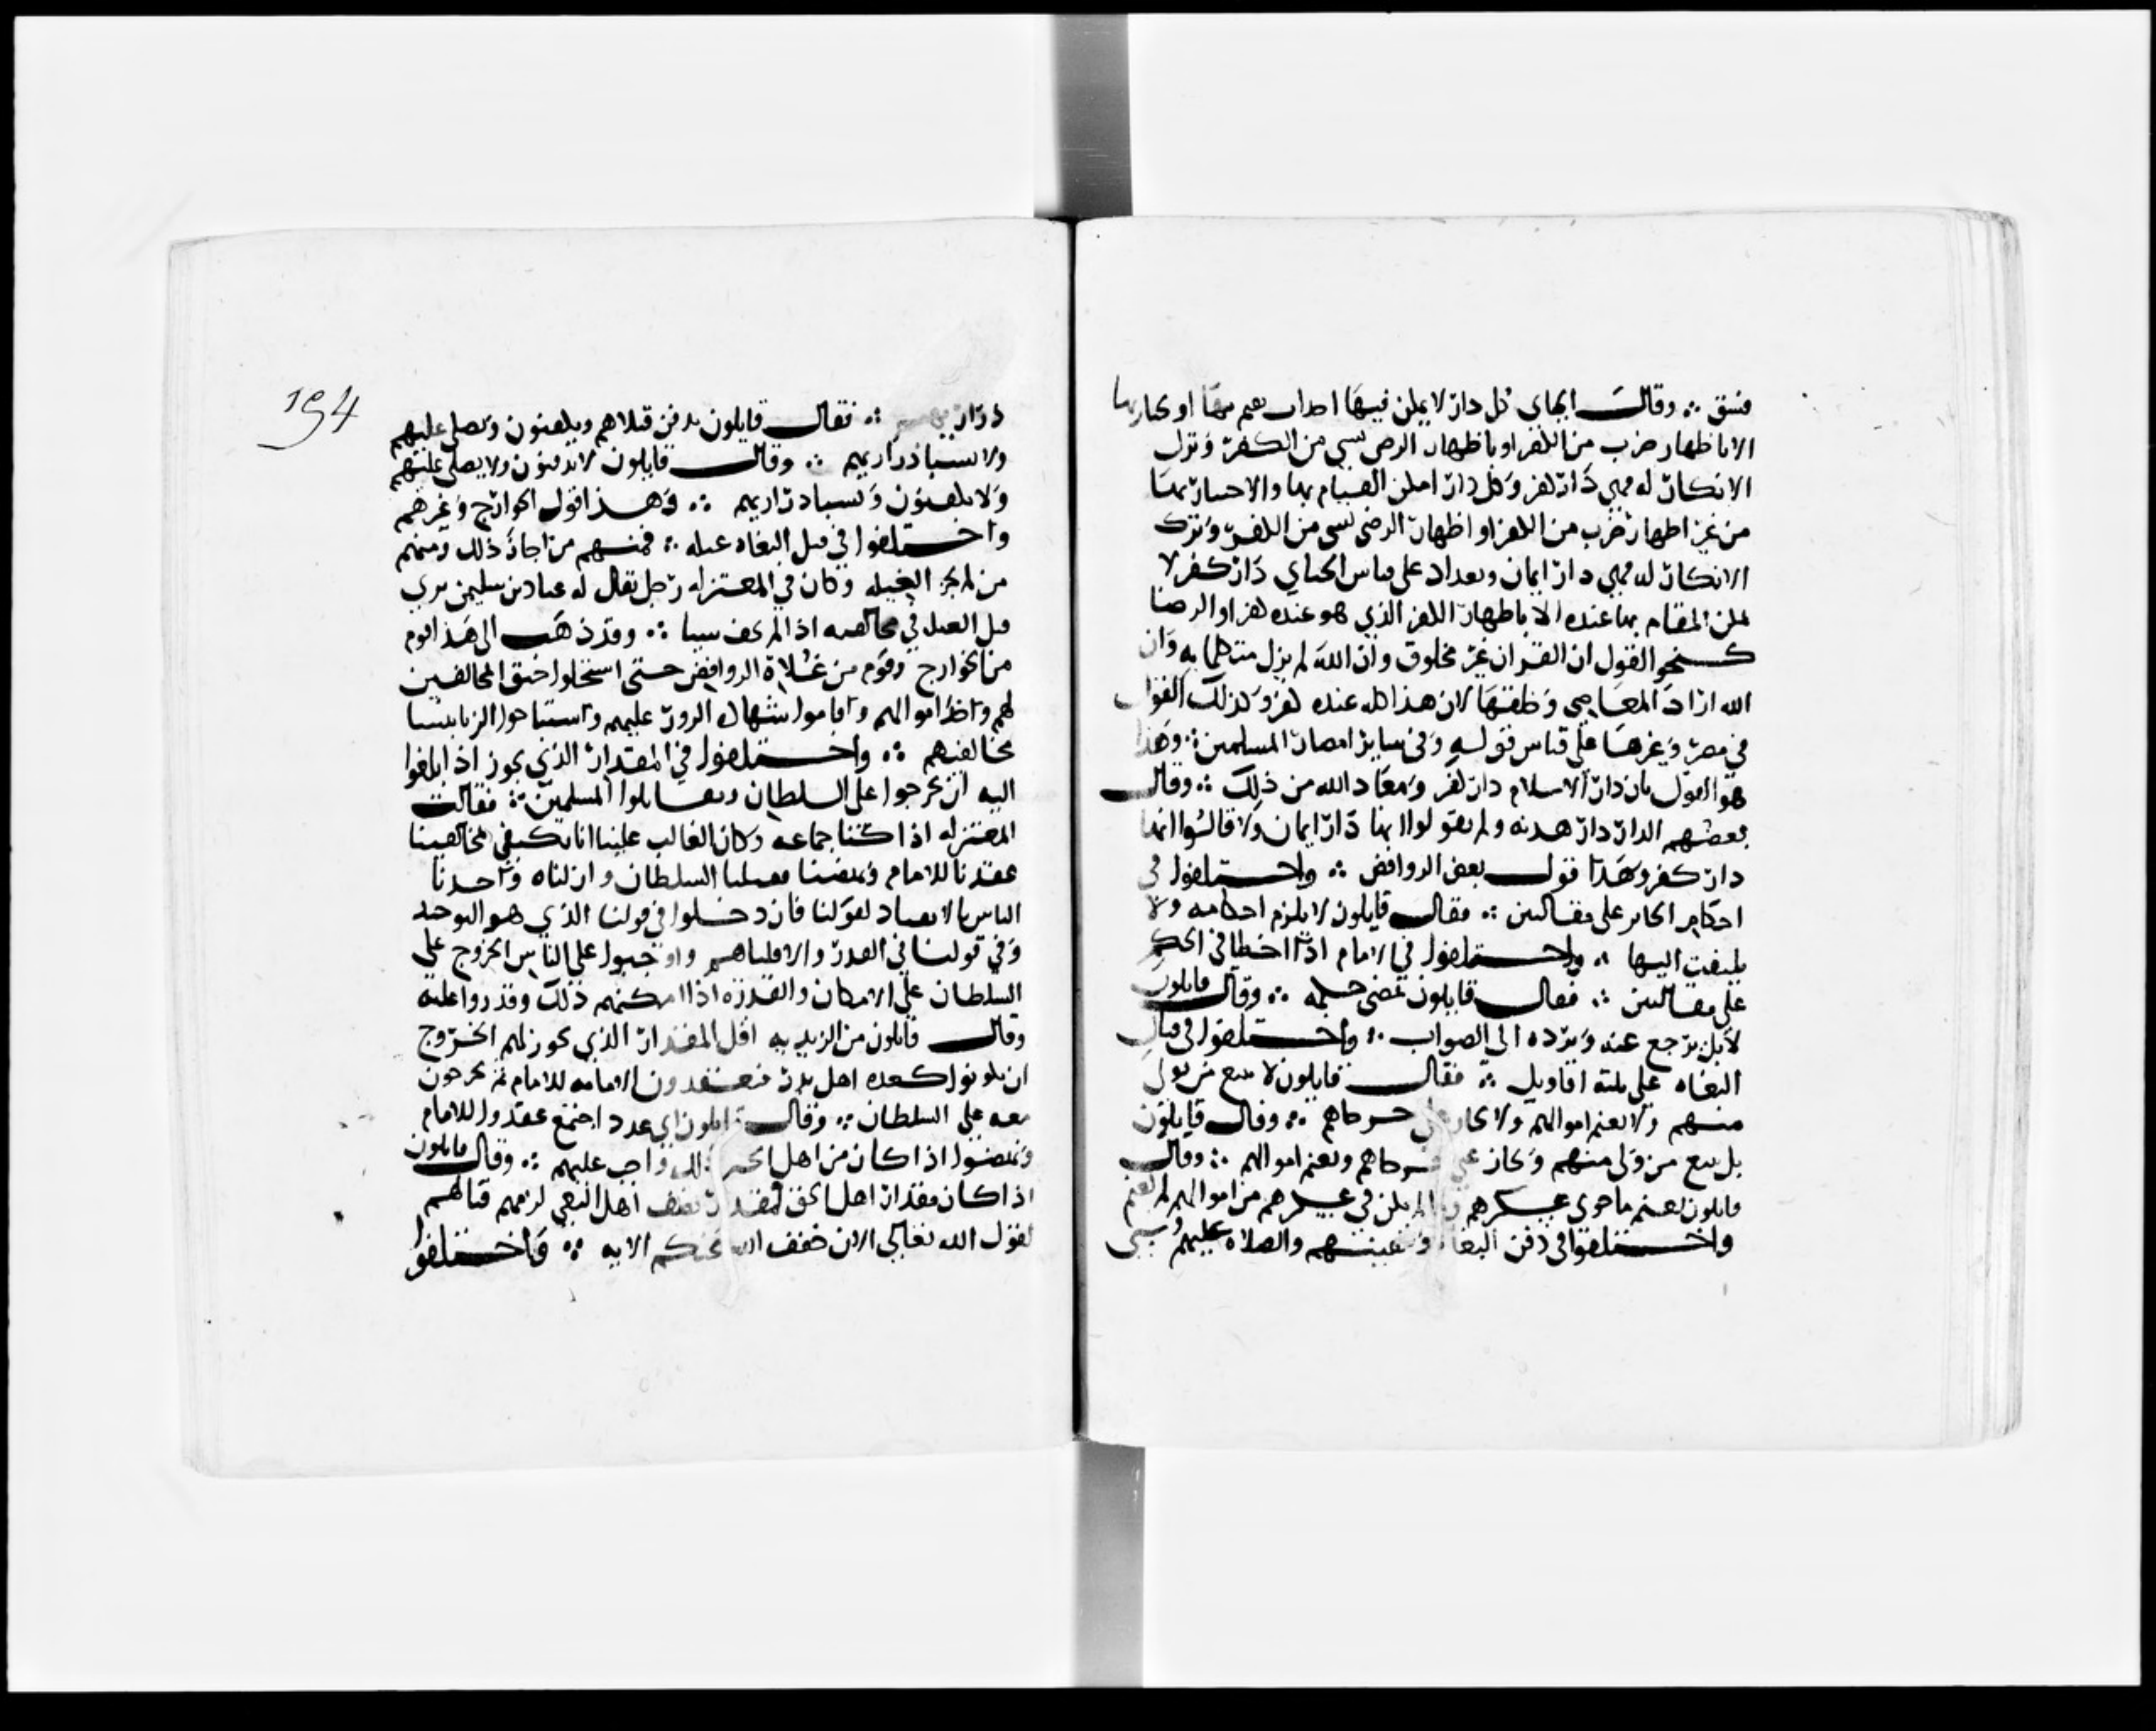 فسق ∴ وقال الجباي كل دار لا يمكن فيها احدا ان يقيم بها او يجتاز بها
الا باظهار ضرب من الكفر او باظهار الرضى بشي من الكفر وترك
الانكار له فهي دار كفر وكل دار امكن القيام بها والاجتياز بها
من غير اظهار ضرب من الكفر او اظهار الرضى بشي من الكفر وترك
الانكار له فهي دار ايمان وبغداد على قياس الجباي دار كفر لا
يمكن المقام بها عنده الا باظهار الكفر الذي هو عنده كفر او الرضا
كنحو القول ان القران غير مخلوق وان الله لم يزل متكلما به وان
الله اراد المعاصي وخلقها لان هذا كله عنده كفر وكذلك القول
في مصر وغيرها على قياس قوله وفي ساير امصار المسلمين ∴ وهذا
هو القول بان دار الاسلام دار كفر ومعاد الله من ذلك ∴ وقال
بعضهم الدار دار هدنه ولم يقولوا انها دار ايمان ولا قالوا انها
دار كفر وهذا قول بعض الروافض ∴ واختلفوا في
احكام الجاير على مقالتين ∴ فقال قايلون لا يلزم احكامه ولا
يلتفت اليها ∴ واختلفوا في الامام اذا اخطا في الحكم
على مقالتين ∴ فقال قايلون يمضي حكمه ∴ وقال قايلون
لا بل يرجع عنه ويرده الى الصواب ∴ واختلفوا في قتال
البغاه على ثلثه اقاويل ∴ فقال قايلون لا يتبع من يولي
منهم ولا يغنم اموالهم ولا يجاز على جرحاهم ∴ وقال قايلون
بل يتبع من ولى منهم ويجاز على جرحاهم ويغنم اموالهم ∴ وقال
قايلون يغنم ما حوى عسكرهم وما لم يكن في عسكرهم من اموالهم لم يغنم
واختلفوا في دفن البغاة وتكفينهم والصلاه عليهم وسبي
194
ذراريهم ∴ فقال قايلون يدفن قتلاهم ويكفنون ويصلى عليهم
ولا يسبا ذراريهم ∴ وقال قايلون لا يدفنون ولا يصلى عليهم
ولا يكفنون ويسبا ذراريهم ∴ وهذا قول الخوارج وغيرهم
واختلفوا في قتل البغاه غيله ∴ فمنهم من اجاز ذلك ومنهم
من لم يجز الغيله وكان في المعتزله رجل يقال له عباد بن سليمن يرى
قتل الغيله في مخالفيه اذا لم يخف شيا ∴ وقد ذهب الى هذا قوم
من الخوارج وقوم من غلاة الروافض حتى استحلوا خنق المخالفين
لهم واخذ اموالهم واقاموا شهادة الزور عليهم واستباحوا الزنا بنسا
مخالفيهم ∴ واختلفوا في المقدار الذي يجوز اذا بلغوا
اليه ان يخرجوا على السلطان ويقاتلوا المسلمين ∴ فقالت
المعتزله اذا كنا جماعه وكان الغالب علينا انا نكتفي مخالفينا
عقدنا للامام ونهضنا فقتلنا السلطان وازلناه واخذنا
الناس بالانقياد لقولنا فان دخلوا في قولنا الذي هو التوحيد
وفي قولنا في القدر والا قتلناهم واوجبوا على الناس الخروج على
السلطان على الامكان والقدره اذا امكنهم ذلك وقدروا عليه
وقال قايلون من الزيديه اقل المقدار الذي يجوز لهم الخروج
ان يكونوا كعده اهل بدر فيعقدون الامامه للامام ثم يخرجون
معه على السلطان ∴ وقال قايلون اي عدد اجتمع عقدوا للامام
ونهضوا اذا كان من اهل الخير ذلك واجب عليهم ∴ وقال قايلون
اذا كان مقدار اهل الحق كمقدار نصف اهل البغي لزمهم قتالهم
لقول الله تعالى الان خفف الله عنكم الايه ∴ واختلفوا